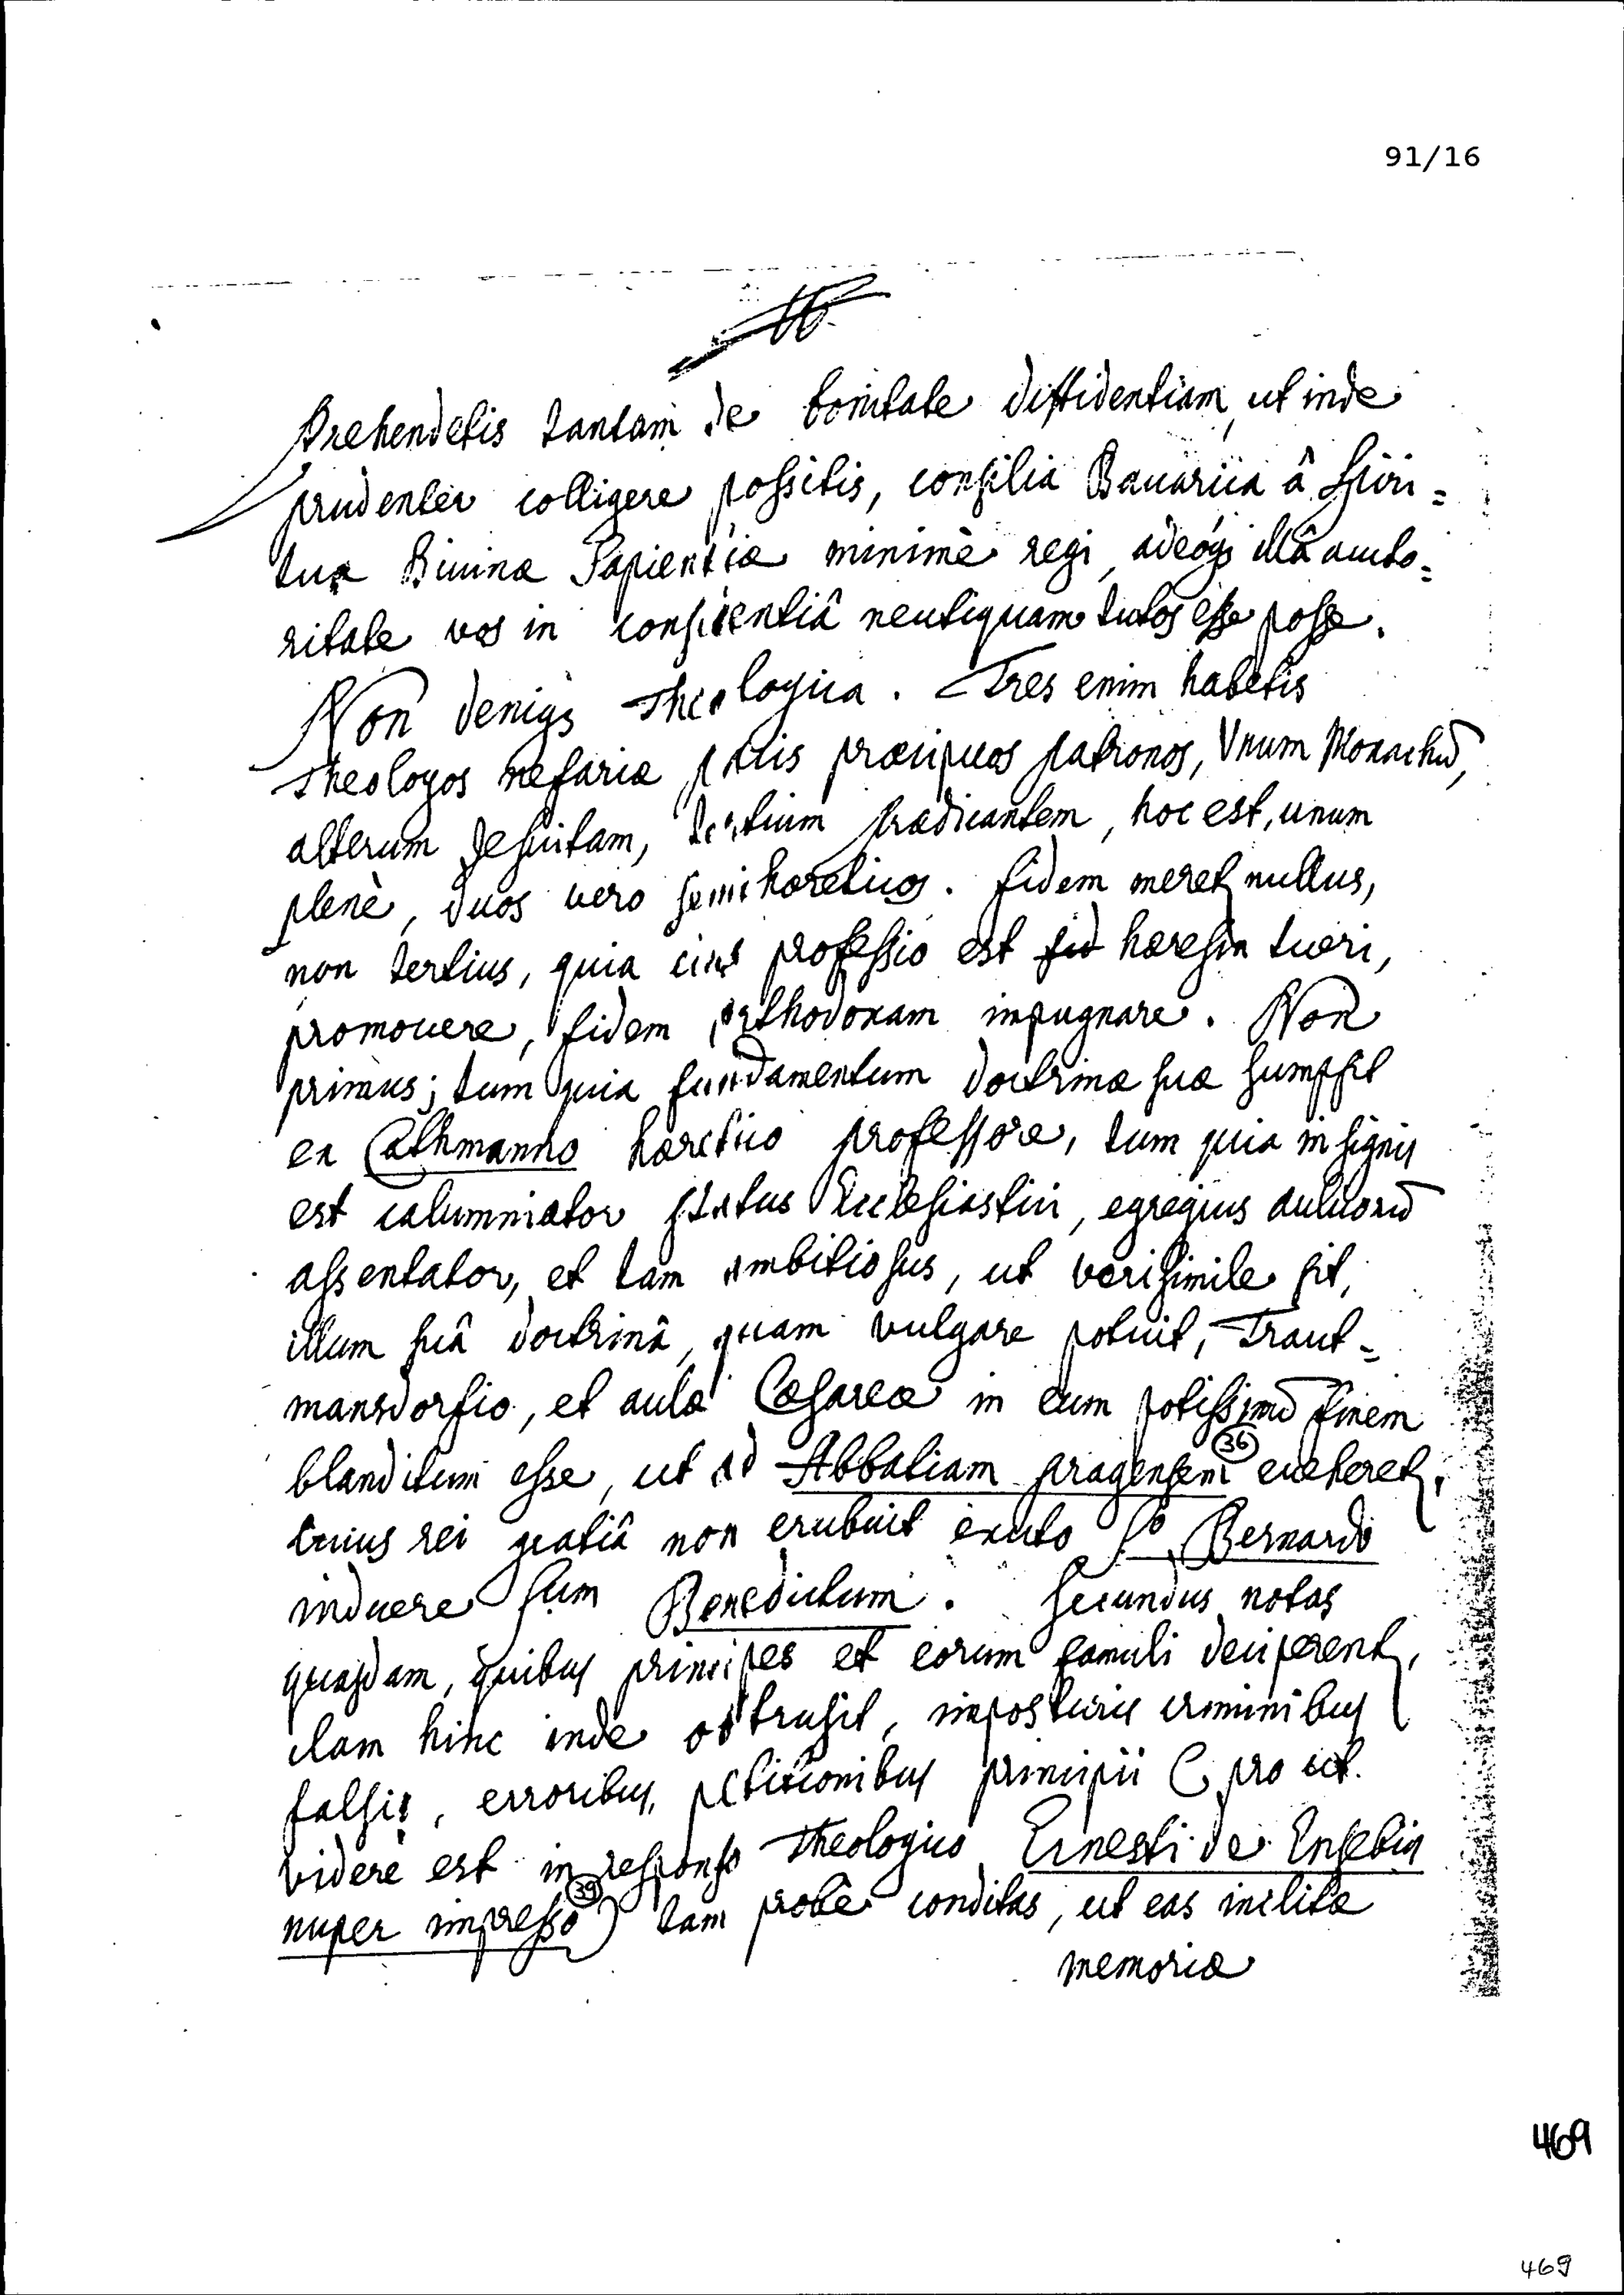 91/16
16.
prehendetis tantam de bonitate diffidentiam, ut inde
prudenter colligere possitis, consilia Bauarica â Spiri=
tux Diuinæ Sapientiæ minimè regi, adeoqȝ illâ aucto=
ritate vos in conscientiâ neutiquam tutos esse posse.
Non deniqȝ Theologica. Tres enim habetis
Theologos nefariæ pacis præcipuos patronos, Vnum Monachū,
alterum Jesuitam, tertium prædicantem, hoc est, unum
plenè, duos vero semihæreticos. fidem meret nullus,
non tertius, quia eius professio est hæresin tueri,
promouere, fidem orthodoxam impugnare. Non
primus; tum quia fundamentum doctrinæ suæ sumpsit
ex Cathmanno hæretico professore, tum quia insignis
est calumniator status Ecclesiastici, egregius aulicorū
assentator, et tam ambitiosus, ut verisimile sit,
illum suâ doctrinâ, quam vulgare potuit, Traut=
mansdorfio, et aulæ Cæsareæ in eum potissimū finem
blanditum esse, ut ad Abbatiam pragensem 36 eueheret,
cuius rei gratiâ non erubuit exuto S.o Bernardo
induere Sum Benedictum. Secundus notas
quasdam, quibus principes et eorum famuli deciperent,
clam hinc inde obtrusit, imposturis criminibus
falsis, erroribus, petitionibus principii (, pro ut
videre est in responso Theologico Ernesti de Eusebiis
nuper impresso 39) tam probè conditas, ut eas inclitæ
memoriæ
469
469